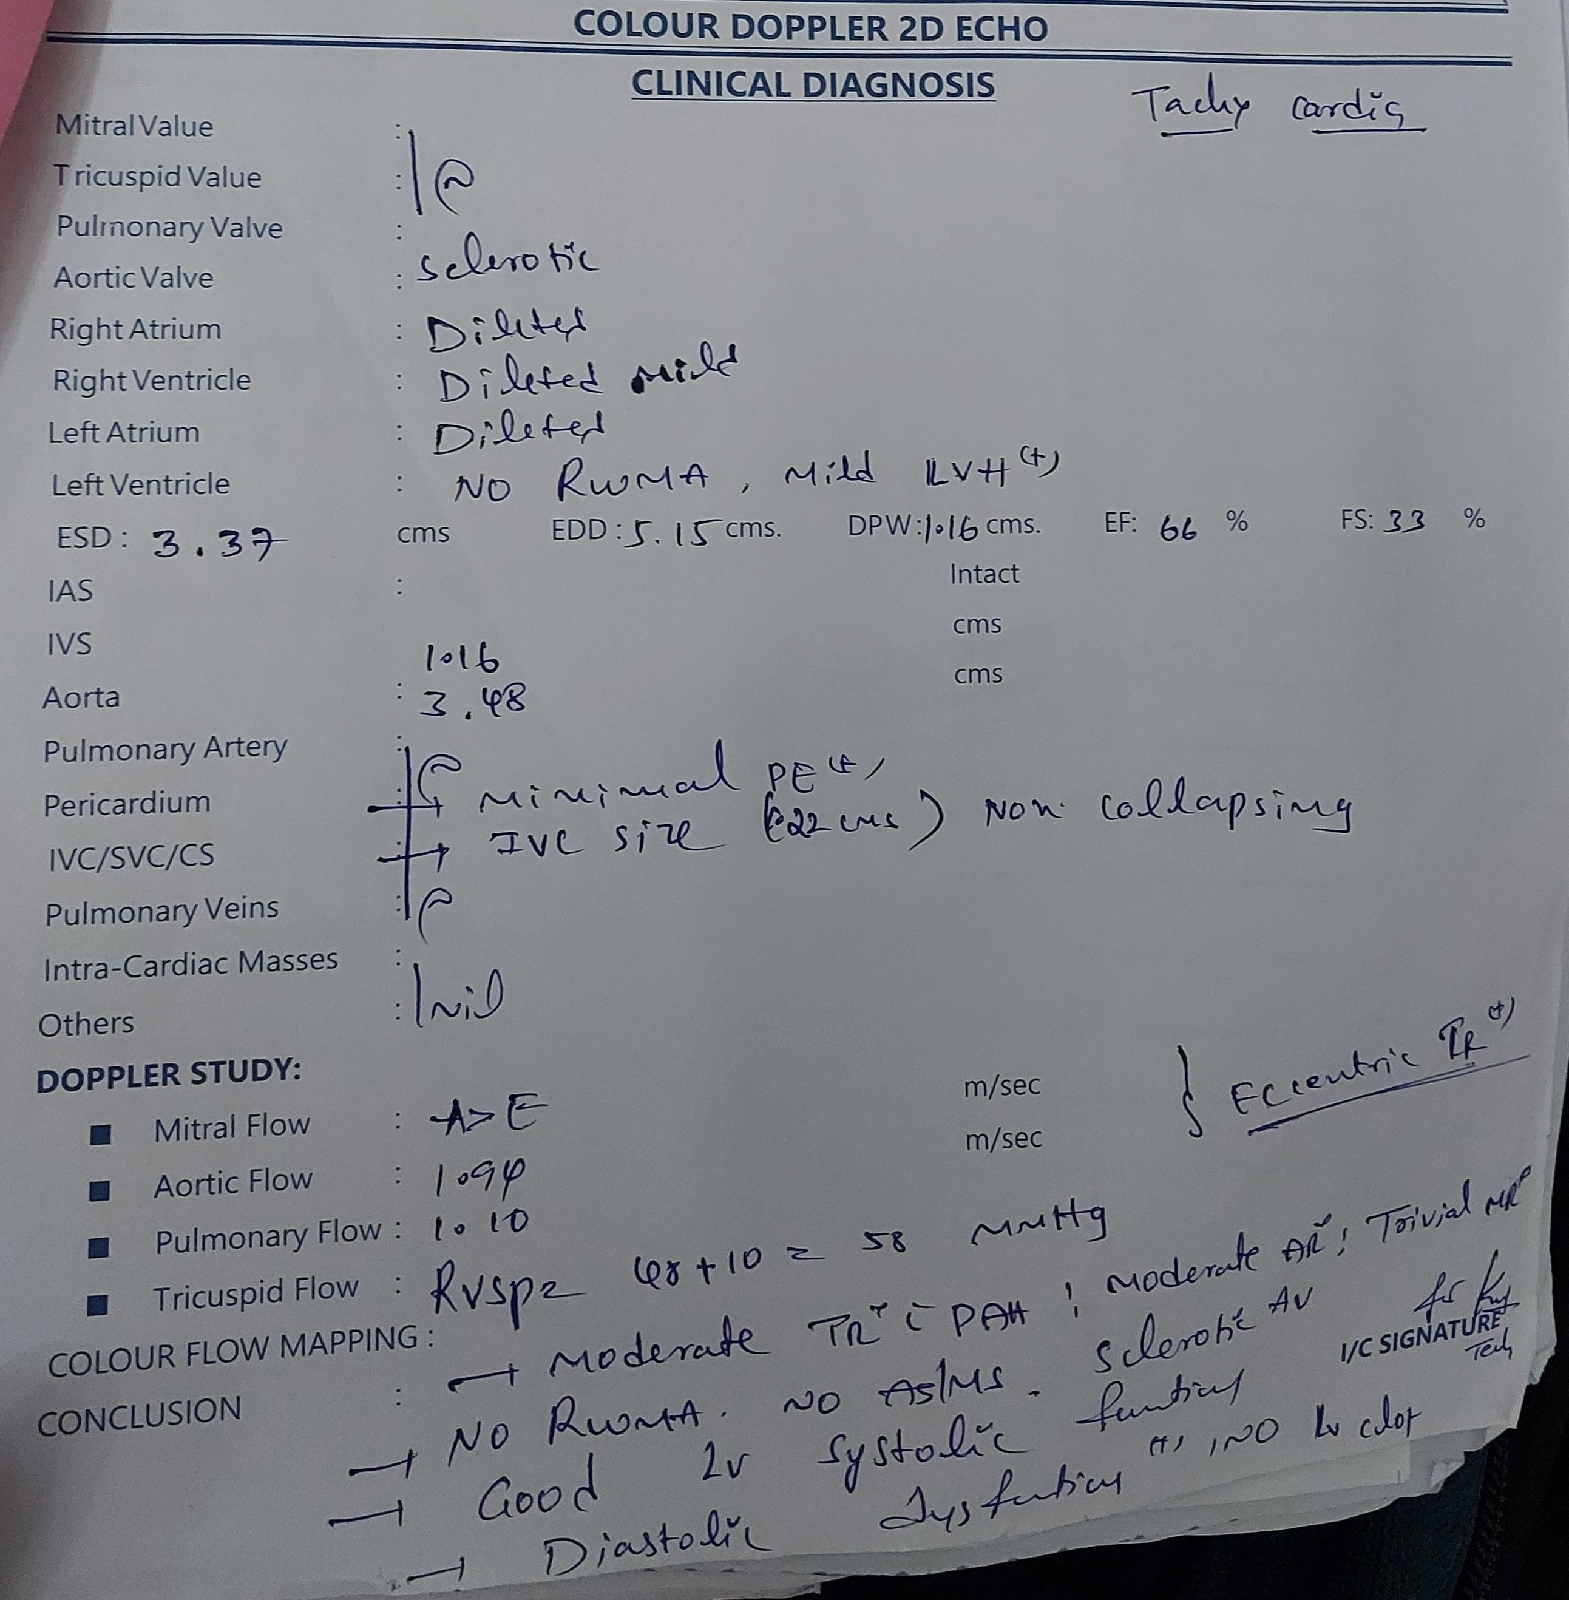 COLOUR DOPPLER 2D ECHO
CLINICAL DIAGNOSIS
Tachy cardia
Mitral Value :
Tricuspid Value : N
Pulmonary Valve :
Aortic Valve : Sclerotic
Right Atrium : Dileted
Right Ventricle : Dileted mild
Left Atrium : Dileted
Left Ventricle : NO RWMA, Mild LVH (+)
ESD : 3.37 cms EDD : 5.15 cms. DPW: 1.16 cms. EF: 66 % FS: 33 %
IAS : Intact
IVS 1.16 cms
Aorta : 3.48 cms
Pulmonary Artery : N
Pericardium : → Minimal PE (+)
IVC/SVC/CS : → IVC size Non collapsing
Pulmonary Veins : N
Intra-Cardiac Masses :
Others : Nil
DOPPLER STUDY:
Mitral Flow : A>E m/sec
Aortic Flow : 1.94 m/sec
Eccentric TR (+)
Pulmonary Flow : 1.10
Tricuspid Flow : RVSP= 48+10 = 58 mmHg
COLOUR FLOW MAPPING :
CONCLUSION : → Moderate TR c PAH ; Moderate AR ; Trivial MR
I/C SIGNATURE
Tech
→ NO RWMA. NO AS/MS. Sclerotic AV
→ Good LV Systolic function
→ Diastolic dysfuntion (+), NO LV clot